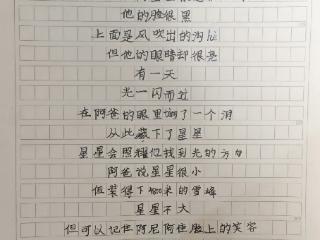 他的脸很黑
上面是风吹出的沟壑
但他的眼睛却很亮
有一天
光一闪而过
在阿爸的眼里 了一个洞
从此藏下了星星
星星会照耀他找到光的方向
阿爸说星星很小
但装得下 米的雪峰
星星不大
但可以记住阿尼阿佳脸上的笑容